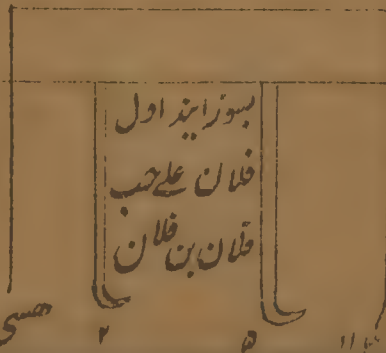 بسوزانید اول
فلان علے حب
فلان بن فلان
۲ ۵